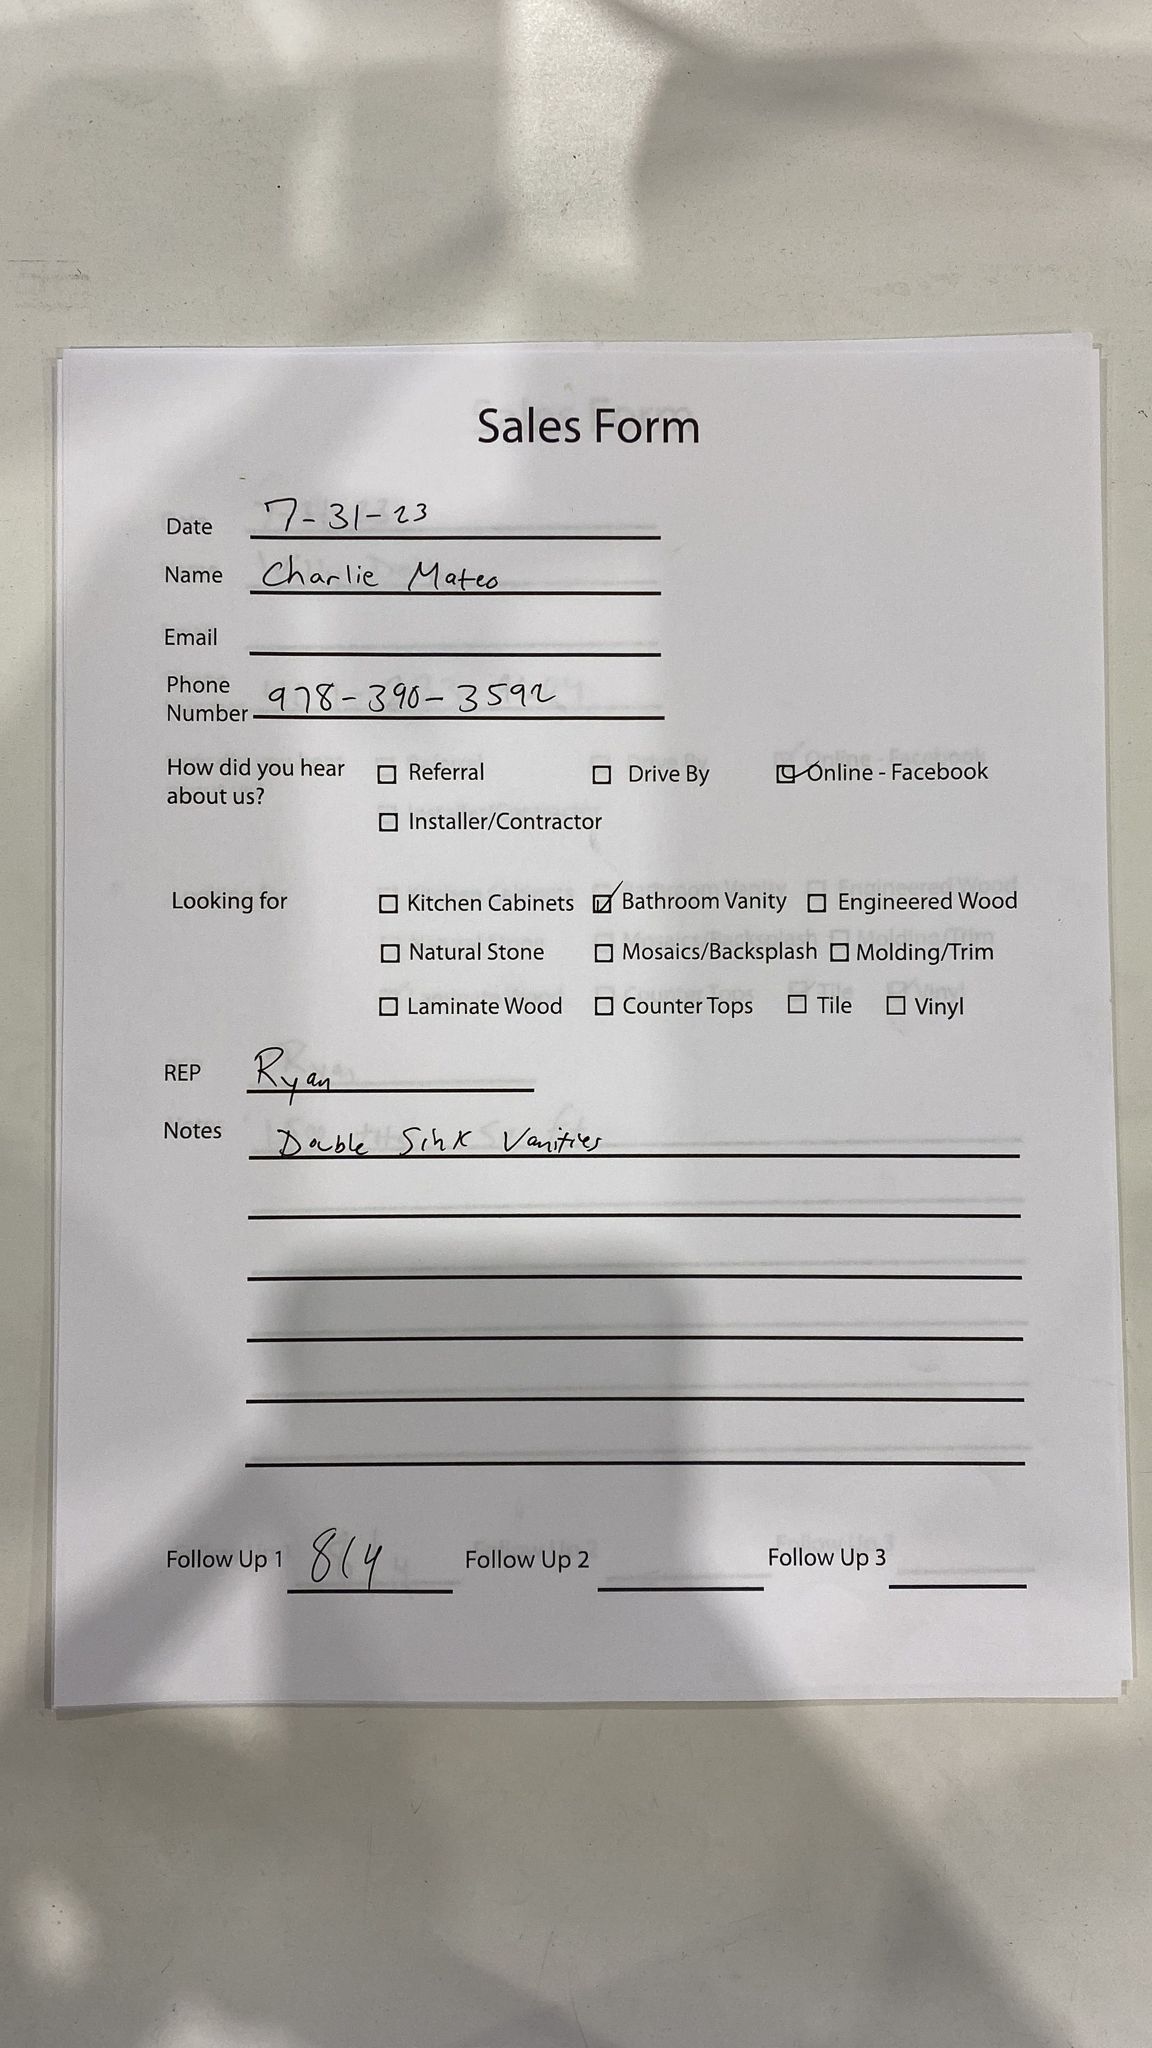 Sales Form
Date 7-31-23
Name Charlie Mateo
Email
Phone
Number 978-390-3592
How did you hear ☐ Referral ☐ Drive By ☑ Online - Facebook
about us?
☐ Installer/Contractor
Looking for ☐ Kitchen Cabinets ☑ Bathroom Vanity ☐ Engineered Wood
☐ Natural Stone ☐ Mosaics/Backsplash ☐ Molding/Trim
☐ Laminate Wood ☐ Counter Tops ☐ Tile ☐ Vinyl
REP Ryan
Notes Double Sink Vanities
Follow Up 1 8/4 Follow Up 2 Follow Up 3